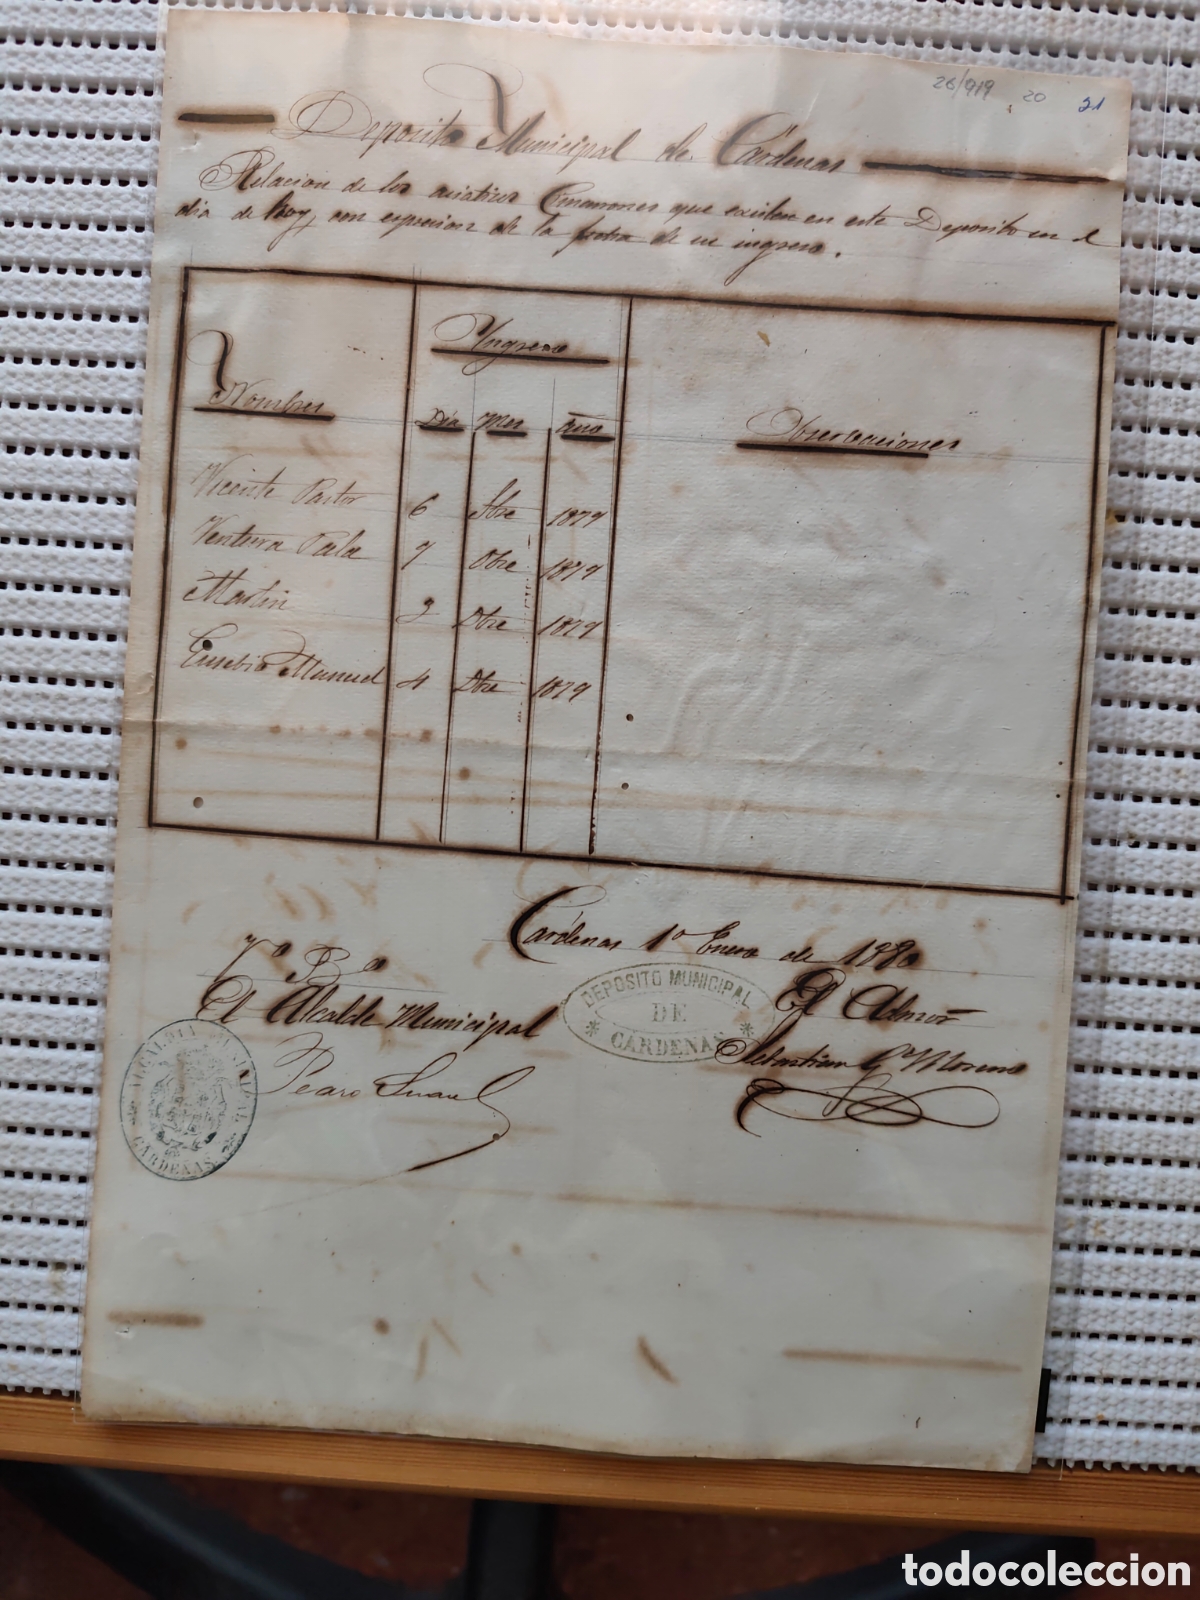 26/919 20 21
Deposito Municipal de Cárdenas
Relacion de los asiaticos Cimarrones que existen en este Deposito en el
dia de hoy, con espresion de la fecha de su ingreso.
Nombres Ingreso Observaciones
Dia Mes Año
Vicente Pastor 6 Sbre 1879
Ventura Pala 7 Obre 1879
Martin 3 Dbre 1879
Eusebio Manuel 4 Dbre 1879
Cárdenas 1º Enero de 1880
Vº Bº
El Alcalde Municipal
El Admor
DEPOSITO MUNICIPAL
DE
CARDENAS
Sebastian G Moreno
Pedro
ALCALDIA MUNICIPAL
CARDENAS
todocoleccion